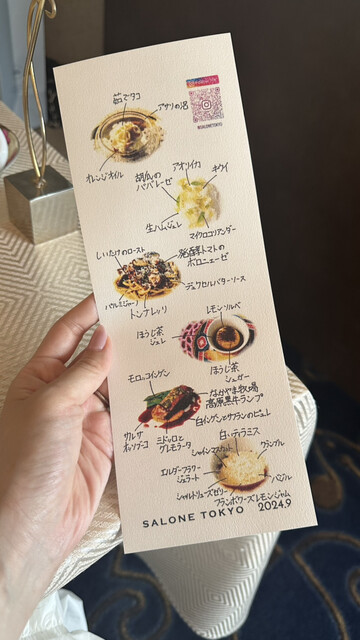 茹でタコ
アサリの泡
オレンジオイル
@SALONETOKYO
アオリイカ
キウイ
胡瓜の
パパレーゼ
生ハムジュレ
マイクロコリアンダー
しいたけのロースト
発酵トマトの
ボロニェーゼ
デュクセルバターソース
パルミジャーノ
トンナレッリ
レモンソルベ
ほうじ茶
ジュレ
ほうじ茶
シュガー
モロッコインゲン
なかやま牧場
高原黒牛ランプ
白インゲンとサフランのピュレ
サルサ
オッソブーコ
ミドッロと
グレモラータ
白いティラミス
シャインマスカット
クランブル
エルダーフラワー
ジェラート
バジル
シャルトリューズゼリー
フランボワーズレモンジャム
SALONE TOKYO
2024.9